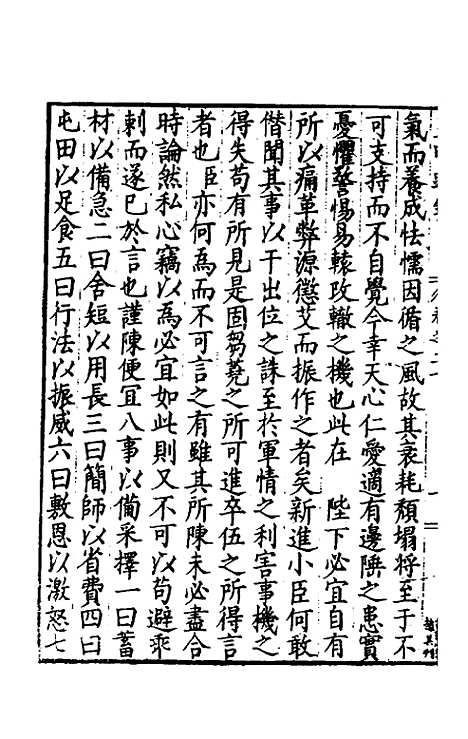 氣而養成怯懦因循之風故其衰耗頹塌將至于不
可支持而不自覺今幸天心仁愛適有邊陲之患實
憂懼警惕易轅攺轍之機也此在　陛下必宜自有
所以痛革弊源懲艾而振作之者矣新進小臣何敢
僭聞其事以干出位之誅至於軍情之利害事機之
得失苟有所見是固芻蕘之所可進卒伍之所得言
者也臣亦何為而不可言之有雖其所陳未必盡合
時論然私心竊以為必宜如此則又不可以苟避乖
剌而遂已於言也謹陳便宜八事以備采擇一曰蓄
材以備急二曰舍短以用長三曰簡師以省費四曰
屯田以足食五曰行法以振威六曰敷恩以激怒七